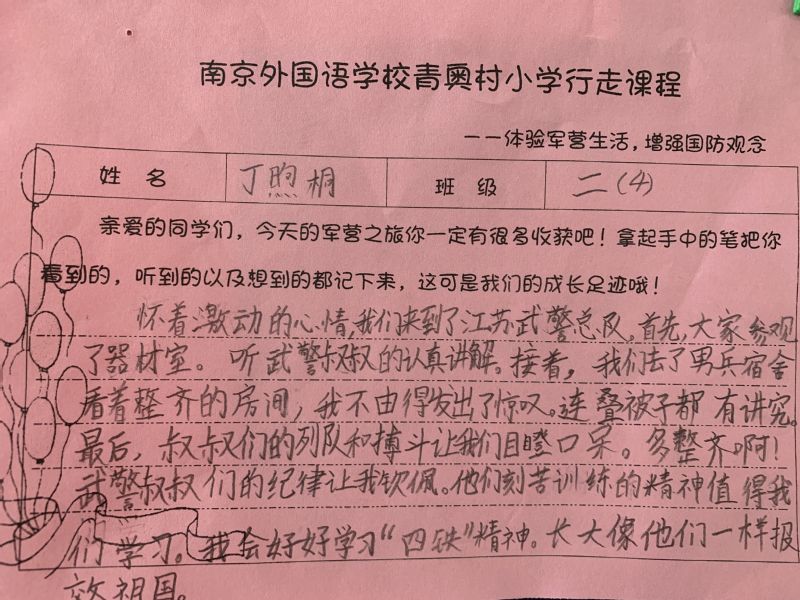 南京外国语学校青奥村小学行走课程
——体验军营生活，增强国防观念
姓 名 丁煦桐 班 级 二（4）
亲爱的同学们，今天的军营之旅你一定有很多收获吧！拿起手中的笔把你
看到的，听到的以及想到的都记下来，这可是我们的成长足迹哦！
怀着激动的心情，我们来到了江苏武警总队。首先，大家参观
了器材室。听武警叔叔的认真讲解。接着，我们去了男兵宿舍
看着整齐的房间，我不由得发出了惊叹。连叠被子都有讲究。
最后，叔叔们的列队和搏斗让我们目瞪口呆。多整齐啊！
武警叔叔们的纪律让我钦佩。他们刻苦训练的精神值得我
们学习。我会好好学习“四铁”精神。长大像他们一样报
效祖国。